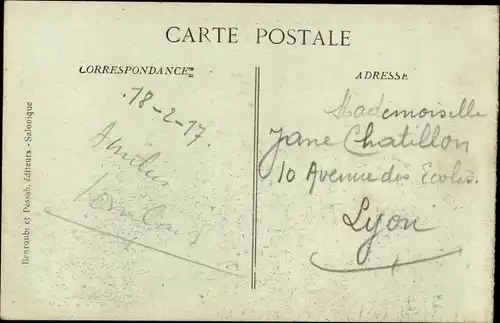 CARTE POSTALE
CORRESPONDANCE
18-2-17.
Amitiés
ADRESSE
Mademoiselle
Jane Chatillon
10 Avenue des Ecoles.
Lyon
Benroubi et Pessah, éditeurs - Salonique